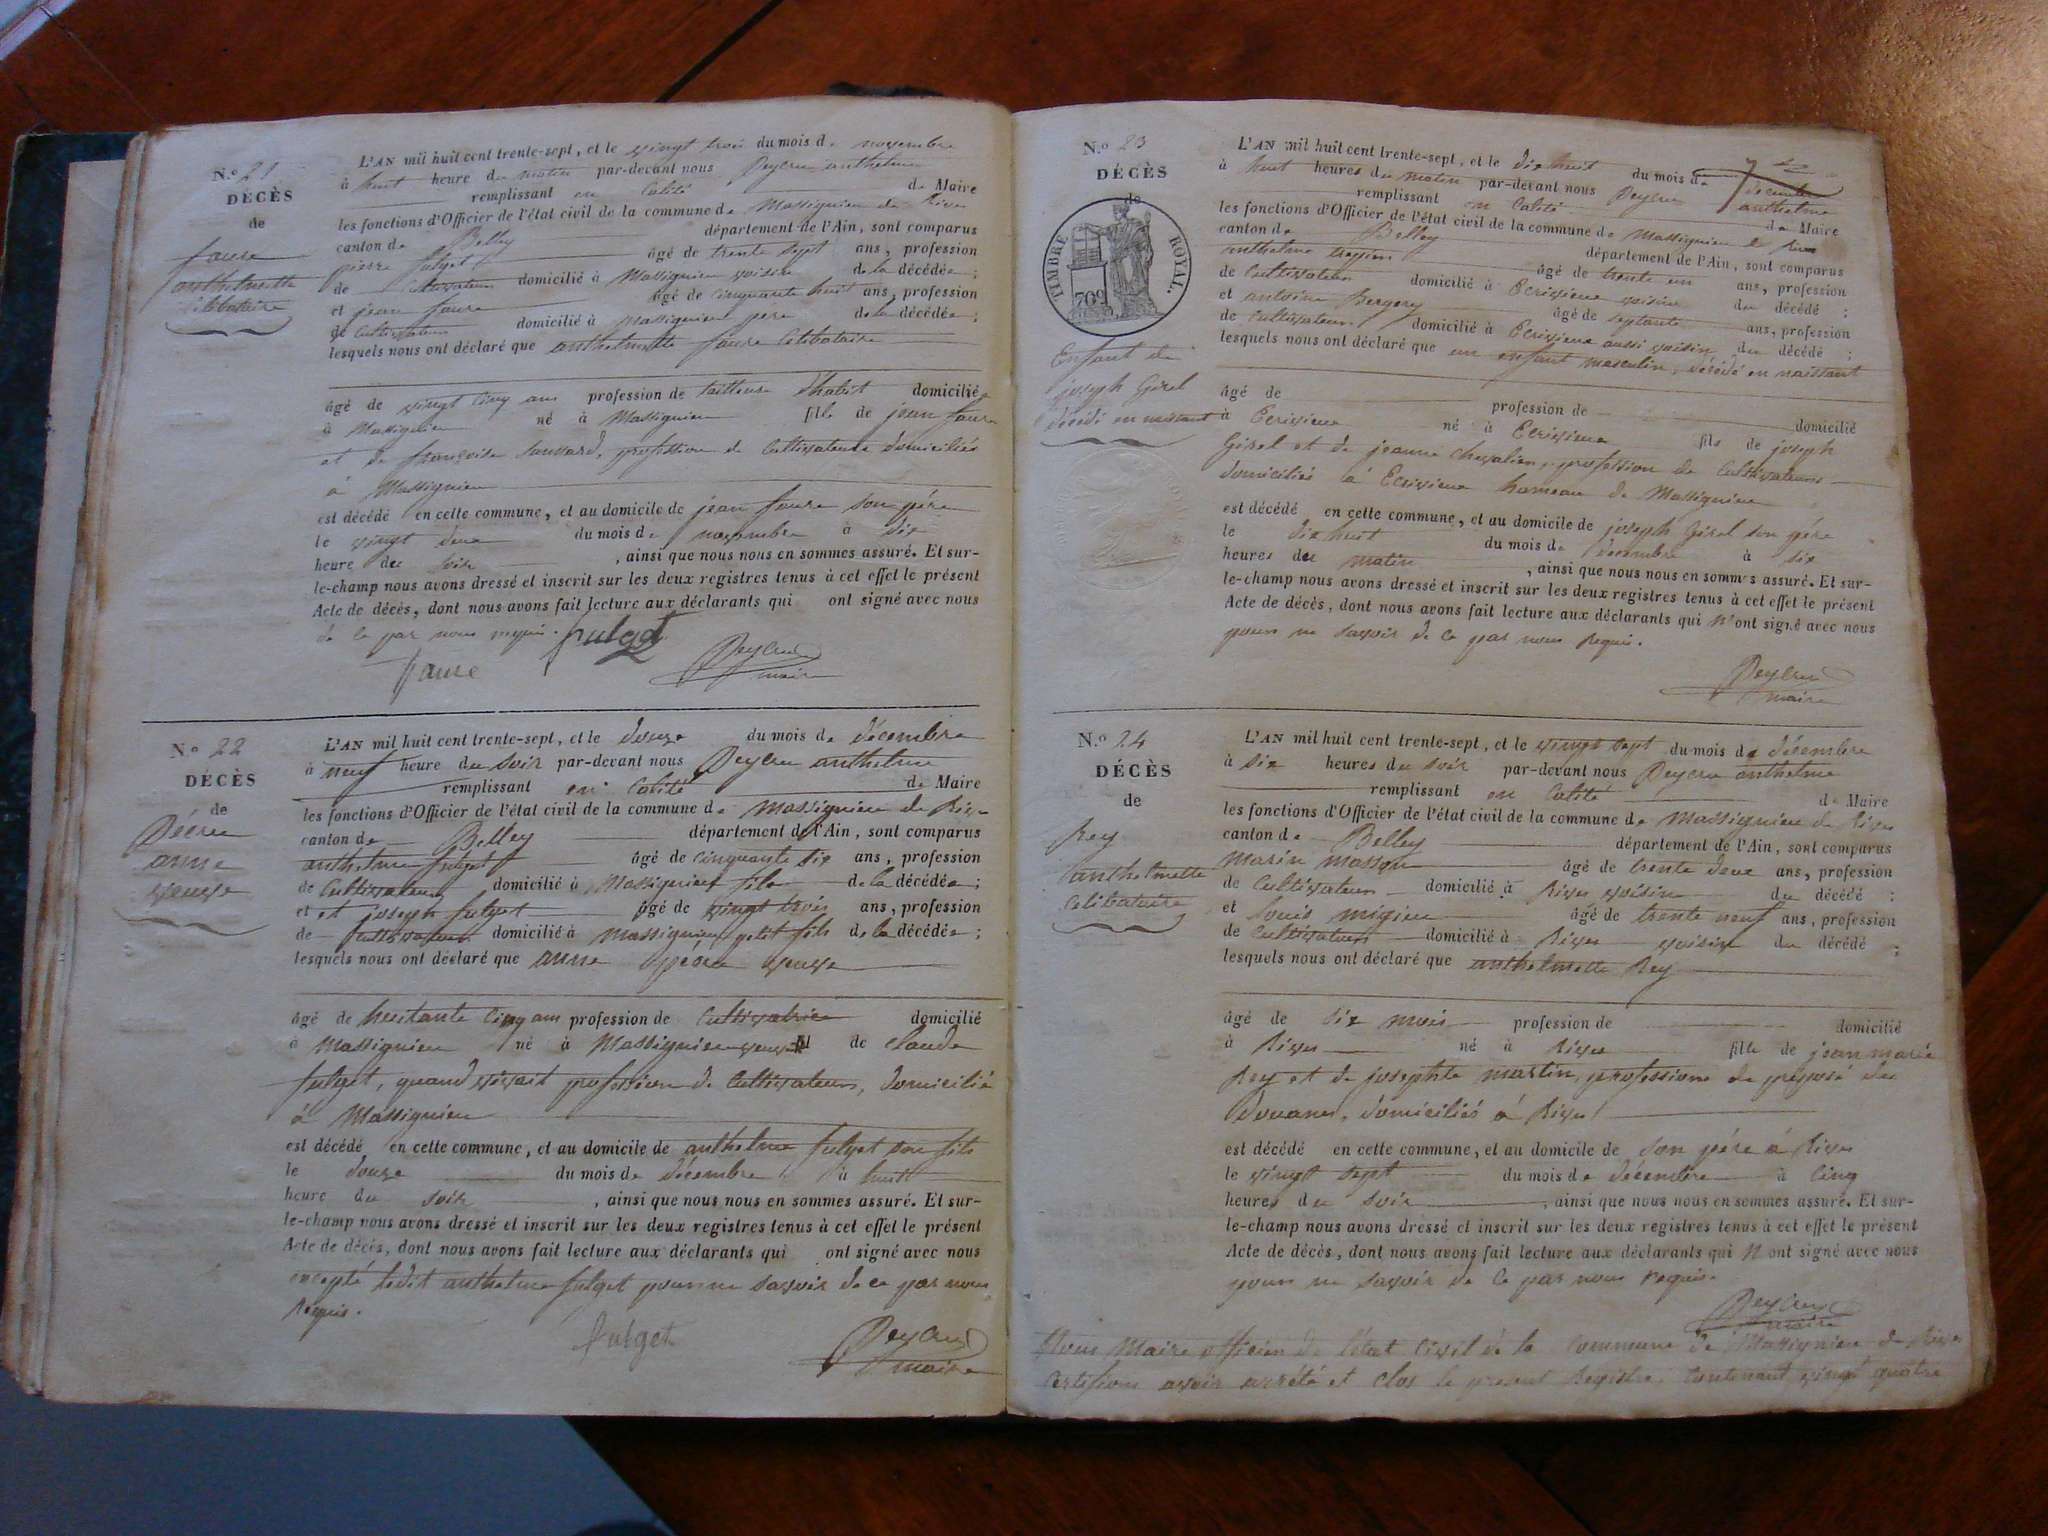 N.o 21
DÉCÈS
de
faure
anthelmette
célibataire
L'AN mil huit cent trente-sept, et le vingt trois du mois de novembre
à huit heure du matin par-devant nous Peycru anthelme
remplissant en Calité de Maire
les fonctions d'Officier de l'état civil de la commune de Massignieu de Rives
canton de Belley département de l'Ain, sont comparus
pierre fulget âgé de trente sept ans, profession
de Cultivateur domicilié à Massignieu voisin de la décédée;
et jean faure âgé de cinquante huit ans, profession
de Cultivateur domicilié à Massignieu pere de la décédée;
lesquels nous ont déclaré que anthelmette faure Célibataire
âgé de vingt cinq ans profession de tailleuse d'habit domicilié
à Massignieu né à Massignieu fille de jean faure
et de françoise profession de Cultivateurs domiciliés
à Massignieu
est décédé en cette commune, et au domicile de jean faure son père
le vingt deux du mois de novembre à six
heure du soir, ainsi que nous nous en sommes assuré. Et sur-
le-champ nous avons dressé et inscrit sur les deux registres tenus à cet effet le présent
Acte de décès, dont nous avons fait lecture aux déclarants qui ont signé avec nous
de ce par nous requis. fulget
faure Peycru maire
N.o 22
DÉCÈS
de
anne
veuve
L'AN mil huit cent trente-sept, et le douze du mois de décembre
à neuf heure du soir par-devant nous Peycru anthelme
remplissant en Calité de Maire
les fonctions d'Officier de l'état civil de la commune de Massignieu de Rives
canton de Belley département de l'Ain, sont comparus
anthelme fulget âgé de cinquante six ans, profession
de Cultivateur domicilié à Massignieu fils de la décédée;
et et joseph fulget âgé de vingt trois ans, profession
de Cultivateur domicilié à Massignieu petit fils de la décédée;
lesquels nous ont déclaré que anne veuve
âgé de huitante cinq ans profession de Cultivatrice domicilié
à Massignieu né à Massignieu veuve de claude
fulget, quand vivait profession de Cultivateur, domicilié
à Massignieu
est décédé en cette commune, et au domicile de anthelme fulget son fils
le douze du mois de décembre à huit
heure du soir, ainsi que nous nous en sommes assuré. Et sur-
le-champ nous avons dressé et inscrit sur les deux registres tenus à cet effet le présent
Acte de décès, dont nous avons fait lecture aux déclarants qui ont signé avec nous
excepté ledit anthelme fulget pour ne savoir de ce par nous
requis.
fulget Peycru maire
N.o 23
DÉCÈS
de
TIMBRE ROYAL.
70c
Enfant de
joseph Girel
décédé en naissant
L'AN mil huit cent trente-sept, et le dix huit du mois de décembre
à huit heures du matin par-devant nous Peycru anthelme
remplissant en Calité de Maire
les fonctions d'Officier de l'état civil de la commune de Massignieu de Rives
canton de Belley département de l'Ain, sont comparus
anthelme âgé de trente un ans, profession
de Cultivateur domicilié à Ecrivieux voisin du décédé;
et antoine Bergery âgé de septante ans, profession
de Cultivateur domicilié à Ecrivieux aussi voisin du décédé;
lesquels nous ont déclaré que un enfant masculin, décédé en naissant
âgé de profession de domicilié
à Ecrivieux né à Ecrivieux fils de joseph
Girel et de jeanne Chevalier, profession de Cultivateurs
domiciliés à Ecrivieux hameau de Massignieu
est décédé en cette commune, et au domicile de joseph Girel son père
le dix huit du mois de décembre à six
heures du matin, ainsi que nous nous en sommes assuré. Et sur-
le-champ nous avons dressé et inscrit sur les deux registres tenus à cet effet le présent
Acte de décès, dont nous avons fait lecture aux déclarants qui n'ont signé avec nous
pour ne savoir de ce par nous requis.
Peycru
maire
N.o 24
DÉCÈS
de
Rey
anthelmette
célibataire
L'AN mil huit cent trente-sept, et le vingt sept du mois de décembre
à six heures du soir par-devant nous Peycru anthelme
remplissant en Calité de Maire
les fonctions d'Officier de l'état civil de la commune de Massignieu de Rives
canton de Belley département de l'Ain, sont comparus
Marin Masson âgé de trente deux ans, profession
de Cultivateur domicilié à Rives voisin du décédé;
et Louis migieu âgé de trente neuf ans, profession
de Cultivateur domicilié à Rives voisin du décédé;
lesquels nous ont déclaré que anthelmette Rey
âgé de six mois profession de domicilié
à Rives né à Rives fille de jean marie
Rey et de josephte martin, profession de préposé des
douanes, domiciliés à Rives
est décédé en cette commune, et au domicile de son père à Rives
le vingt sept du mois de décembre à cinq
heures du soir, ainsi que nous nous en sommes assuré. Et sur-
le-champ nous avons dressé et inscrit sur les deux registres tenus à cet effet le présent
Acte de décès, dont nous avons fait lecture aux déclarants qui n'ont signé avec nous
pour ne savoir de ce par nous requis.
Peycru
maire
Nous Maire officier de l'état Civil de la Commune de Massignieu de Rives
Certifions avoir arrêté et Clos le present Registre, Contenant vingt quatre